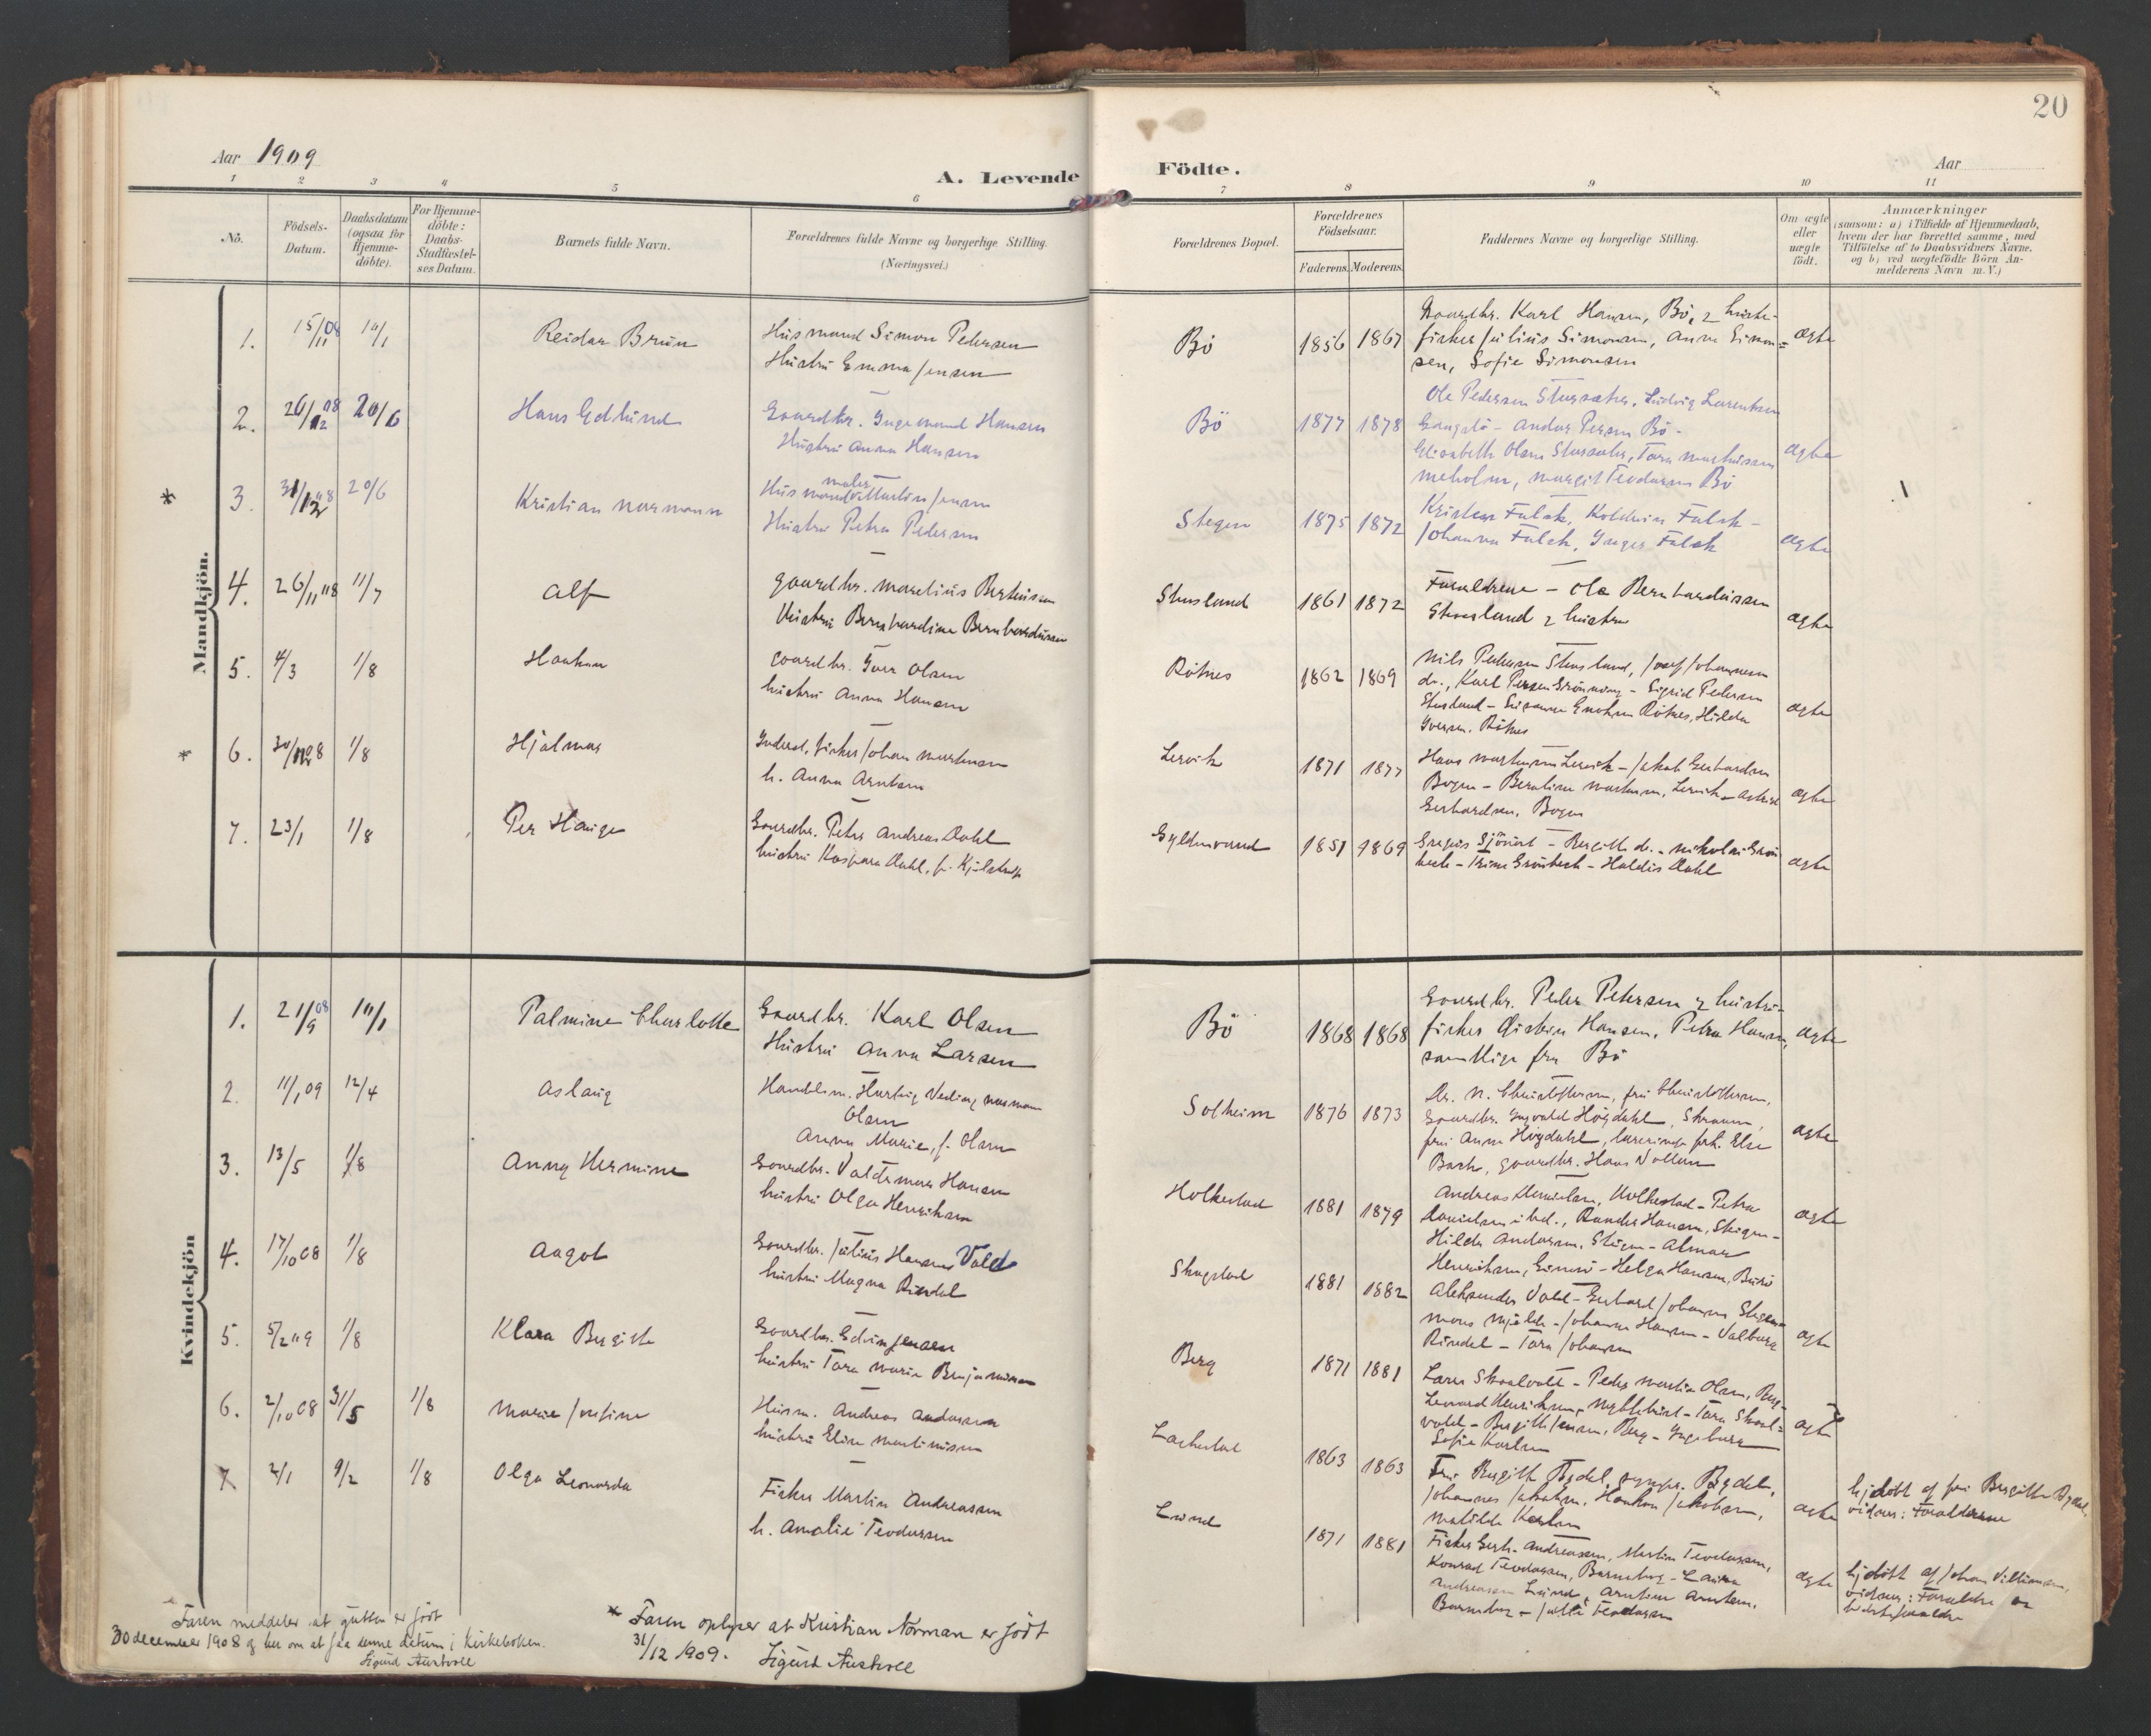 20
Aar 1909
A. Levende Födte.
Aar
1 2 3 4 5 6 7 8 9 10 11
No.
Födsels-
Datum.
Daabsdatum
(ogsaa for
Hjemme-
döbte).
For Hjemme-
döbte:
Daabs-
Stadfæstel-
ses Datum.
Barnets fulde Navn.
Forældrenes fulde Navne og borgerlige Stilling.
(Næringsvei.)
Forældrenes Bopæl.
Forældrenes
Födselsaar.
Faderens. Moderens.
Faddernes Navne og borgerlige Stilling.
Om ægte
eller
uægte
födt.
Anmærkninger
(saasom: a) i Tilfælde af Hjemmedaab,
hvem der har forrettet samme, med
Tilföielse af to Daabsvidners Navne.
og b) ved uægtefödte Börn An-
melderens Navn m. V.)
Mandkjön.
1. 15/11 08 10/1 Reidar Brun
Husmand Simon Pedersen
Hustru Emma Jensen
Bö 1856 1867
Gaardbr. Karl Hansen, Bö, & hustr-
fisker Julius Simonsen, Anna Simon=
sen, Sofie Simonsen
ægte
2. 26/12 08 20/6 Hans Edlund
Gaardbr. Ingemand Hansen
Hustru Anna Hansen
Bö 1877 1878
Ole Pedersen Storsæter, Ludvig Larentsen
- Andor Persen Bö -
Elisabeth Olsen
Margit Teodorsen Bö
ægte
* 3. 31/12 08 20/6 Kristian Normann
maler
Husmand Martin Jensen
Hustru Petra Pedersen
Stegen 1875 1872
Falch, Falch -
Johanna Falch, Inger Falch
ægte
4. 26/11 08 11/7 Alf
Gaardbr. Marelius Berteussen
Hustru Bernhardine Bernhardussen
Stensland 1861 1872
Forældrene - Ole Bernhardussen
Stensland & hustru
ægte
5. 4/3 1/8 Haakon
Gaardbr. Iver Olsen
hustru Anna Hansen
Rötnes 1862 1869
Nils Pedersen Stensland, Josef Johannesen
do., Karl Persen Grönning - Sigrid Pedersen
Stensland - Susanna Enoksen Rötnes, Hilda
Iversen, Rötnes
ægte
* 6. 30/12 08 1/8 Hjalmar
Inderst, fisker Johan Martinsen
h. Anna Arntsen
Lervik 1871 1877
Hans Martinsen Lervik - Jakob Gerhardsen
Bogen - Berntine Martinsen, Lervik - Astrid
Gerhardsen, Bogen
ægte
7. 23/1 1/8 Per Hauge
Gaardbr. Peter Andreas Dahl
hustru Kaspara Dahl, f.
Gyldenvand 1851 1869
Bergith do. - Nikolai Grön
bech - Grönbech - Haldis Dahl
ægte
Kvindekjön
1. 21/9 08 10/1 Palmine Charlotte
Gaardbr. Karl Olsen
Hustru Anna Larsen
Bö 1868 1868
Gaardbr. Peder Petersen & hustru-
fisker Hansen, Petra Hansen,
samtlige fra Bö
ægte
2. 11/1 09 12/4 Aslaug
Handelsm. Hartvig Normann
Olsen
Anna Marie, f. Olsen
Solheim 1876 1873
Dr. N. Christoffersen, fru Christoffersen,
Gaardbr. Ingvald Högdahl, Straum,
fru Anna Högdahl, lærerinde frk. Else
Bach, gaardbr. Hans Nollen
ægte
3. 13/5 1/8 Anna Hermine
Gaardbr. Valdemar Hansen
hustru Olga Henriksen
Holkestad 1881 1879
Andreas Danielsen, Holkestad - Petra
Danielsen ibd., Hansen, Steigen -
Hilda Andersen, Steigen - Almar
Henriksen, - Helga Hansen,
ægte
4. 17/10 08 1/8 Aagot
Gaardbr. Julius Hansen Vold
hustru Magna Rindal
Skagstad 1881 1882
Aleksander Vold - Gerhard Johansen Stegen -
Mons Mjelde - Johanna Hansen - Valborg
Rindal - Tora Johansen
ægte
5. 5/2 09 1/8 Klara Bergithe
Gaardbr. Edvin Jensen
hustru Tora Marie Benjaminsen
Berg 1871 1881
Lars Skoalvold - Peder Martin Olsen, Berg -
Leonard Henriksen, - Tora Skoal=
vold - Bergith Jensen, Berg - Ingeborg
Sofie Karlsen
ægte
6. 2/10 08 31/5 1/8 Marie Josefine
Husm. Andreas Andersen
hustru Elise Martinussen
Laskestad 1863 1863
Fru Bergith Bydal, Bydal,
Johannes Jakobsen, Haakon Jakobsen,
Matilde Karlsen
ægte
hjdöbt af fru Bergitte Bydal,
vidner: Forældrene
7 2/1 9/2 1/8 Olga Leonarda
Fisker Martin Andreassen
h. Amalie Teodorsen
Lund 1871 1881
Fisker Gerh. Andreassen, Martin Teodorsen,
Konrad Teodorsen, - Laura
Andreassen Lund, Arntine Arntsen,
- Teodorsen
ægte
hjdöbt af Johan Villumsen,
vidner: Forældre og
bedsteforældre
* Faren meddeler at gutten er född
30 december 1908 og ber om at faa denne datum i kirkeboken.
Sigurd Austvoll
* Faren oplyser at Kristian Norman er född
31/12 1909. Sigurd Austvoll